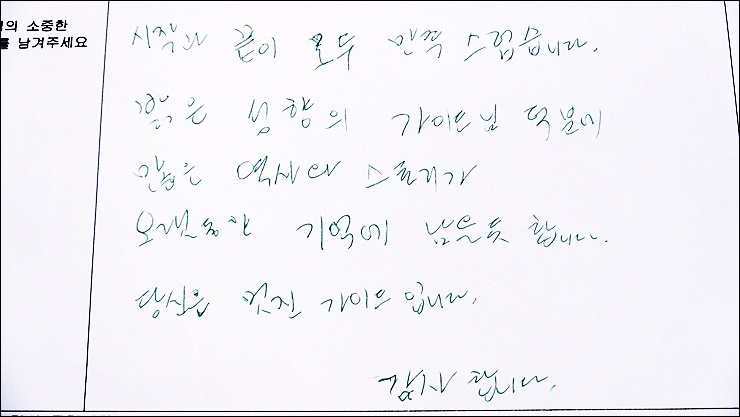 의 소중한
를 남겨주세요
시작과 끝이 모두 만족 스럽습니다.
젊은 성향의 가이드님 덕분에
많은 역사와 스토리가
오랫동안 기억에 남을듯 합니다.
당신은 멋진 가이드 입니다.
감사 합니다.